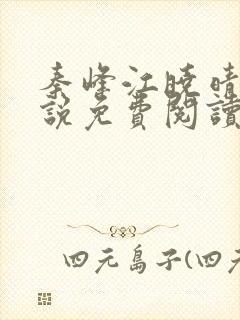 秦峰江曉晴
說免費閱讀
四元島子(四元